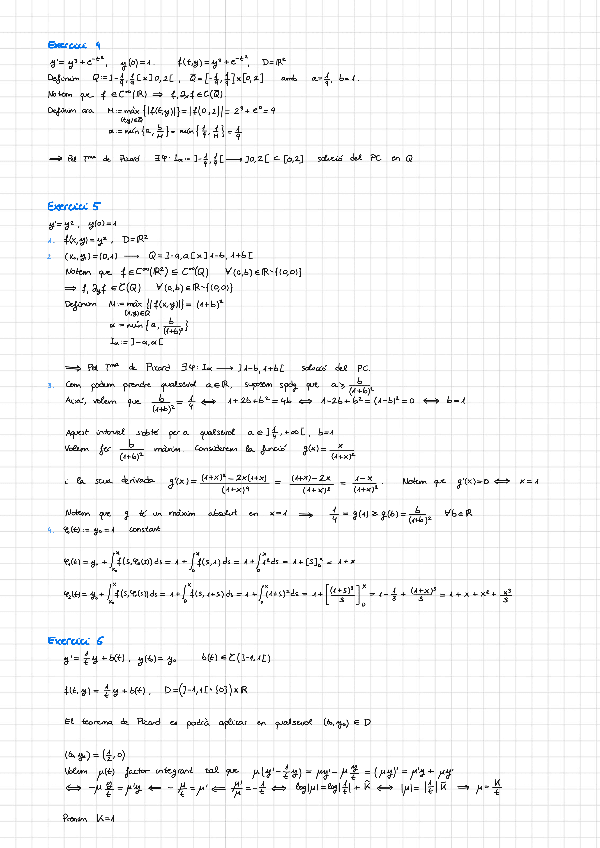 Exercici 4
y' = y³ + e^{-t²}, y(0) = 1. f(t,y) = y³ + e^{-t²}, D = ℝ²
Definim Q := ]-1/9, 1/9[ x ]0,2[, Q̄ = [-1/9, 1/9] x [0,2] amb a = 1/9, b = 1.
Notem que f ∈ C^∞(ℝ) ⇒ f, ∂yf ∈ C(Q)
Definim ara M := màx_{(t,y)∈Q̄} {|f(t,y)|} = |f(0,2)| = 2³ + e⁰ = 9
α := mín {a, b/M} = mín {1/9, 1/M} = 1/9
⟹ Pel Tma de Picard ∃ φ: Iα := ]-1/9, 1/9[ ⟶ ]0,2[ ⊂ [0,2] solució del PC en Q
Exercici 5
y' = y², y(0) = 1
1. f(x,y) = y², D = ℝ²
2. (x₀,y₀) = (0,1) ⟶ Q = ]-a,a[ x ]1-b, 1+b[
Notem que f ∈ C^∞(ℝ²) ⊆ C^∞(Q) ∀(a,b) ∈ ℝ-{(0,0)}
⟹ f, ∂yf ∈ C(Q) ∀(a,b) ∈ ℝ-{(0,0)}
Definim M := màx_{(x,y)∈Q} {|f(x,y)|} = (1+b)²
α := mín {a, b/(1+b)²}
Iα := ]-α,α[
⟹ Pel Tma de Picard ∃ φ: Iα ⟶ ]1-b, 1+b[ solució del PC.
3. Com podem prendre qualsevol a ∈ ℝ, suposem spdg que a ≥ b/(1+b)²
Així, volem que b/(1+b)² = 1/4 ⟺ 1+2b+b² = 4b ⟺ 1-2b+b² = (1-b)² = 0 ⟺ b = 1
Aquest interval s'obté per a qualsevol a ∈ ]1/4, +∞[, b = 1
Volem fer b/(1+b)² màxim. Considerem la funció g(x) = x/(1+x)²
i la seva derivada g'(x) = ((1+x)² - 2x(1+x))/(1+x)⁴ = ((1+x) - 2x)/(1+x)³ = (1-x)/(1+x)³. Notem que g'(x) = 0 ⟺ x = 1
Notem que g té un màxim absolut en x = 1 ⟹ 1/4 = g(1) ≥ g(b) = b/(1+b)² ∀b ∈ ℝ
4. φ₀(t) := y₀ = 1 constant
φ₁(t) = y₀ + ∫_{x₀}^{x} f(s,φ₀(s)) ds = 1 + ∫_0^x f(s,1) ds = 1 + ∫_0^x 1² ds = 1 + [s]_0^x = 1 + x
φ₂(t) = y₀ + ∫_{x₀}^{x} f(s,φ₁(s)) ds = 1 + ∫_0^x f(s,1+s) ds = 1 + ∫_0^x (1+s)² ds = 1 + [(1+s)³/3]_0^x = 1 - 1/3 + (1+x)³/3 = 1 + x + x² + x³/3
Exercici 6
y' = 1/t y + b(t), y(t₀) = y₀ b(t) ∈ C(]-1,1[)
f(t,y) = 1/t y + b(t), D = (]-1,1[ - {0}) x ℝ
El teorema de Picard es podrà aplicar en qualsevol (t₀,y₀) ∈ D
(t₀,y₀) = (1/2, 0)
Volem μ(t) factor integrant tal que μ(y' - 1/t y) = μy' - μ y/t = (μy)' = μ'y + μy'
⟺ -μ y/t = μ'y ⟸ -μ/t = μ' ⟸ μ'/μ = -1/t ⟺ log|μ| = log|1/t| + K̃ ⟺ |μ| = |1/t| K̃ ⟹ μ = K/t
Prenem K = 1